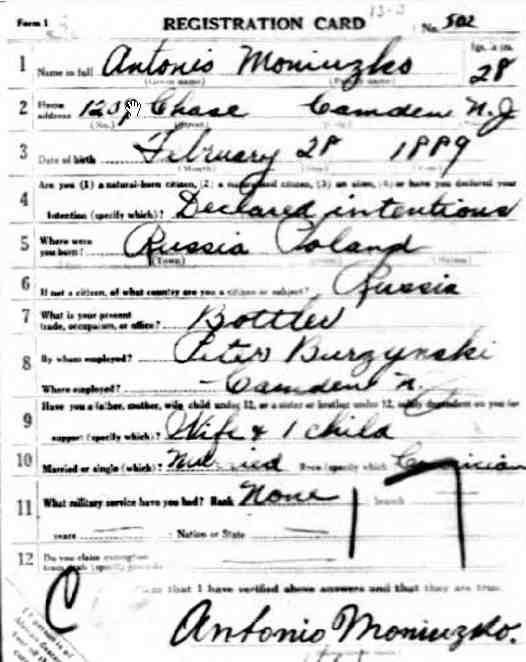 Form 1 REGISTRATION CARD No. 502
1 Name in full Antonio Moniuzko Age, in yrs. 28
(Given name) (Family name)
2 Home address 1239 Chase Camden N.J
(No.) (Street)
3 Date of birth February 28 1889
(Month) (Day)
4 Are you (1) a natural-born citizen, (2) a naturalized citizen, (3) an alien, (4) or have you declared your
intention (specify which)? Declared intentions
5 Where were you born? Russia Poland
(Town) (State) (Nation)
6 If not a citizen, of what country are you a citizen or subject? Russia
7 What is your present trade, occupation, or office? Bottler
8 By whom employed? Peter Burzynski
Where employed? Camden N.J
9 Have you a father, mother, wife, child under 12, or a sister or brother under 12, solely dependent on you for
support (specify which)? Wife & 1 child
10 Married or single (which)? Married Race (specify which) Caucasian
11 What military service have you had? Rank None branch
years Nation or State
17
12 Do you claim exemption from draft (specify grounds)
C
that I have verified above answers and that they are true.
Antonio Moniuzko.